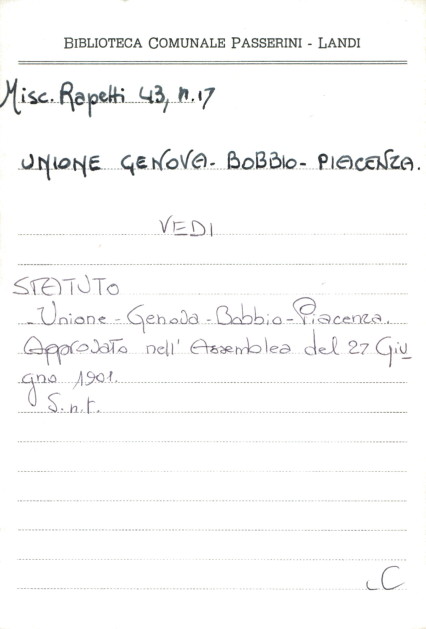 BIBLIOTECA COMUNALE PASSERINI - LANDI
Misc. Rapetti 43, n.17
UNIONE GENOVA - BOBBIO - PIACENZA.
VEDI
STATUTO
- Unione - Genova - Bobbio - Piacenza.
Approvato nell' Assemblea del 27 Giu
gno 1901.
S.n.t.
C